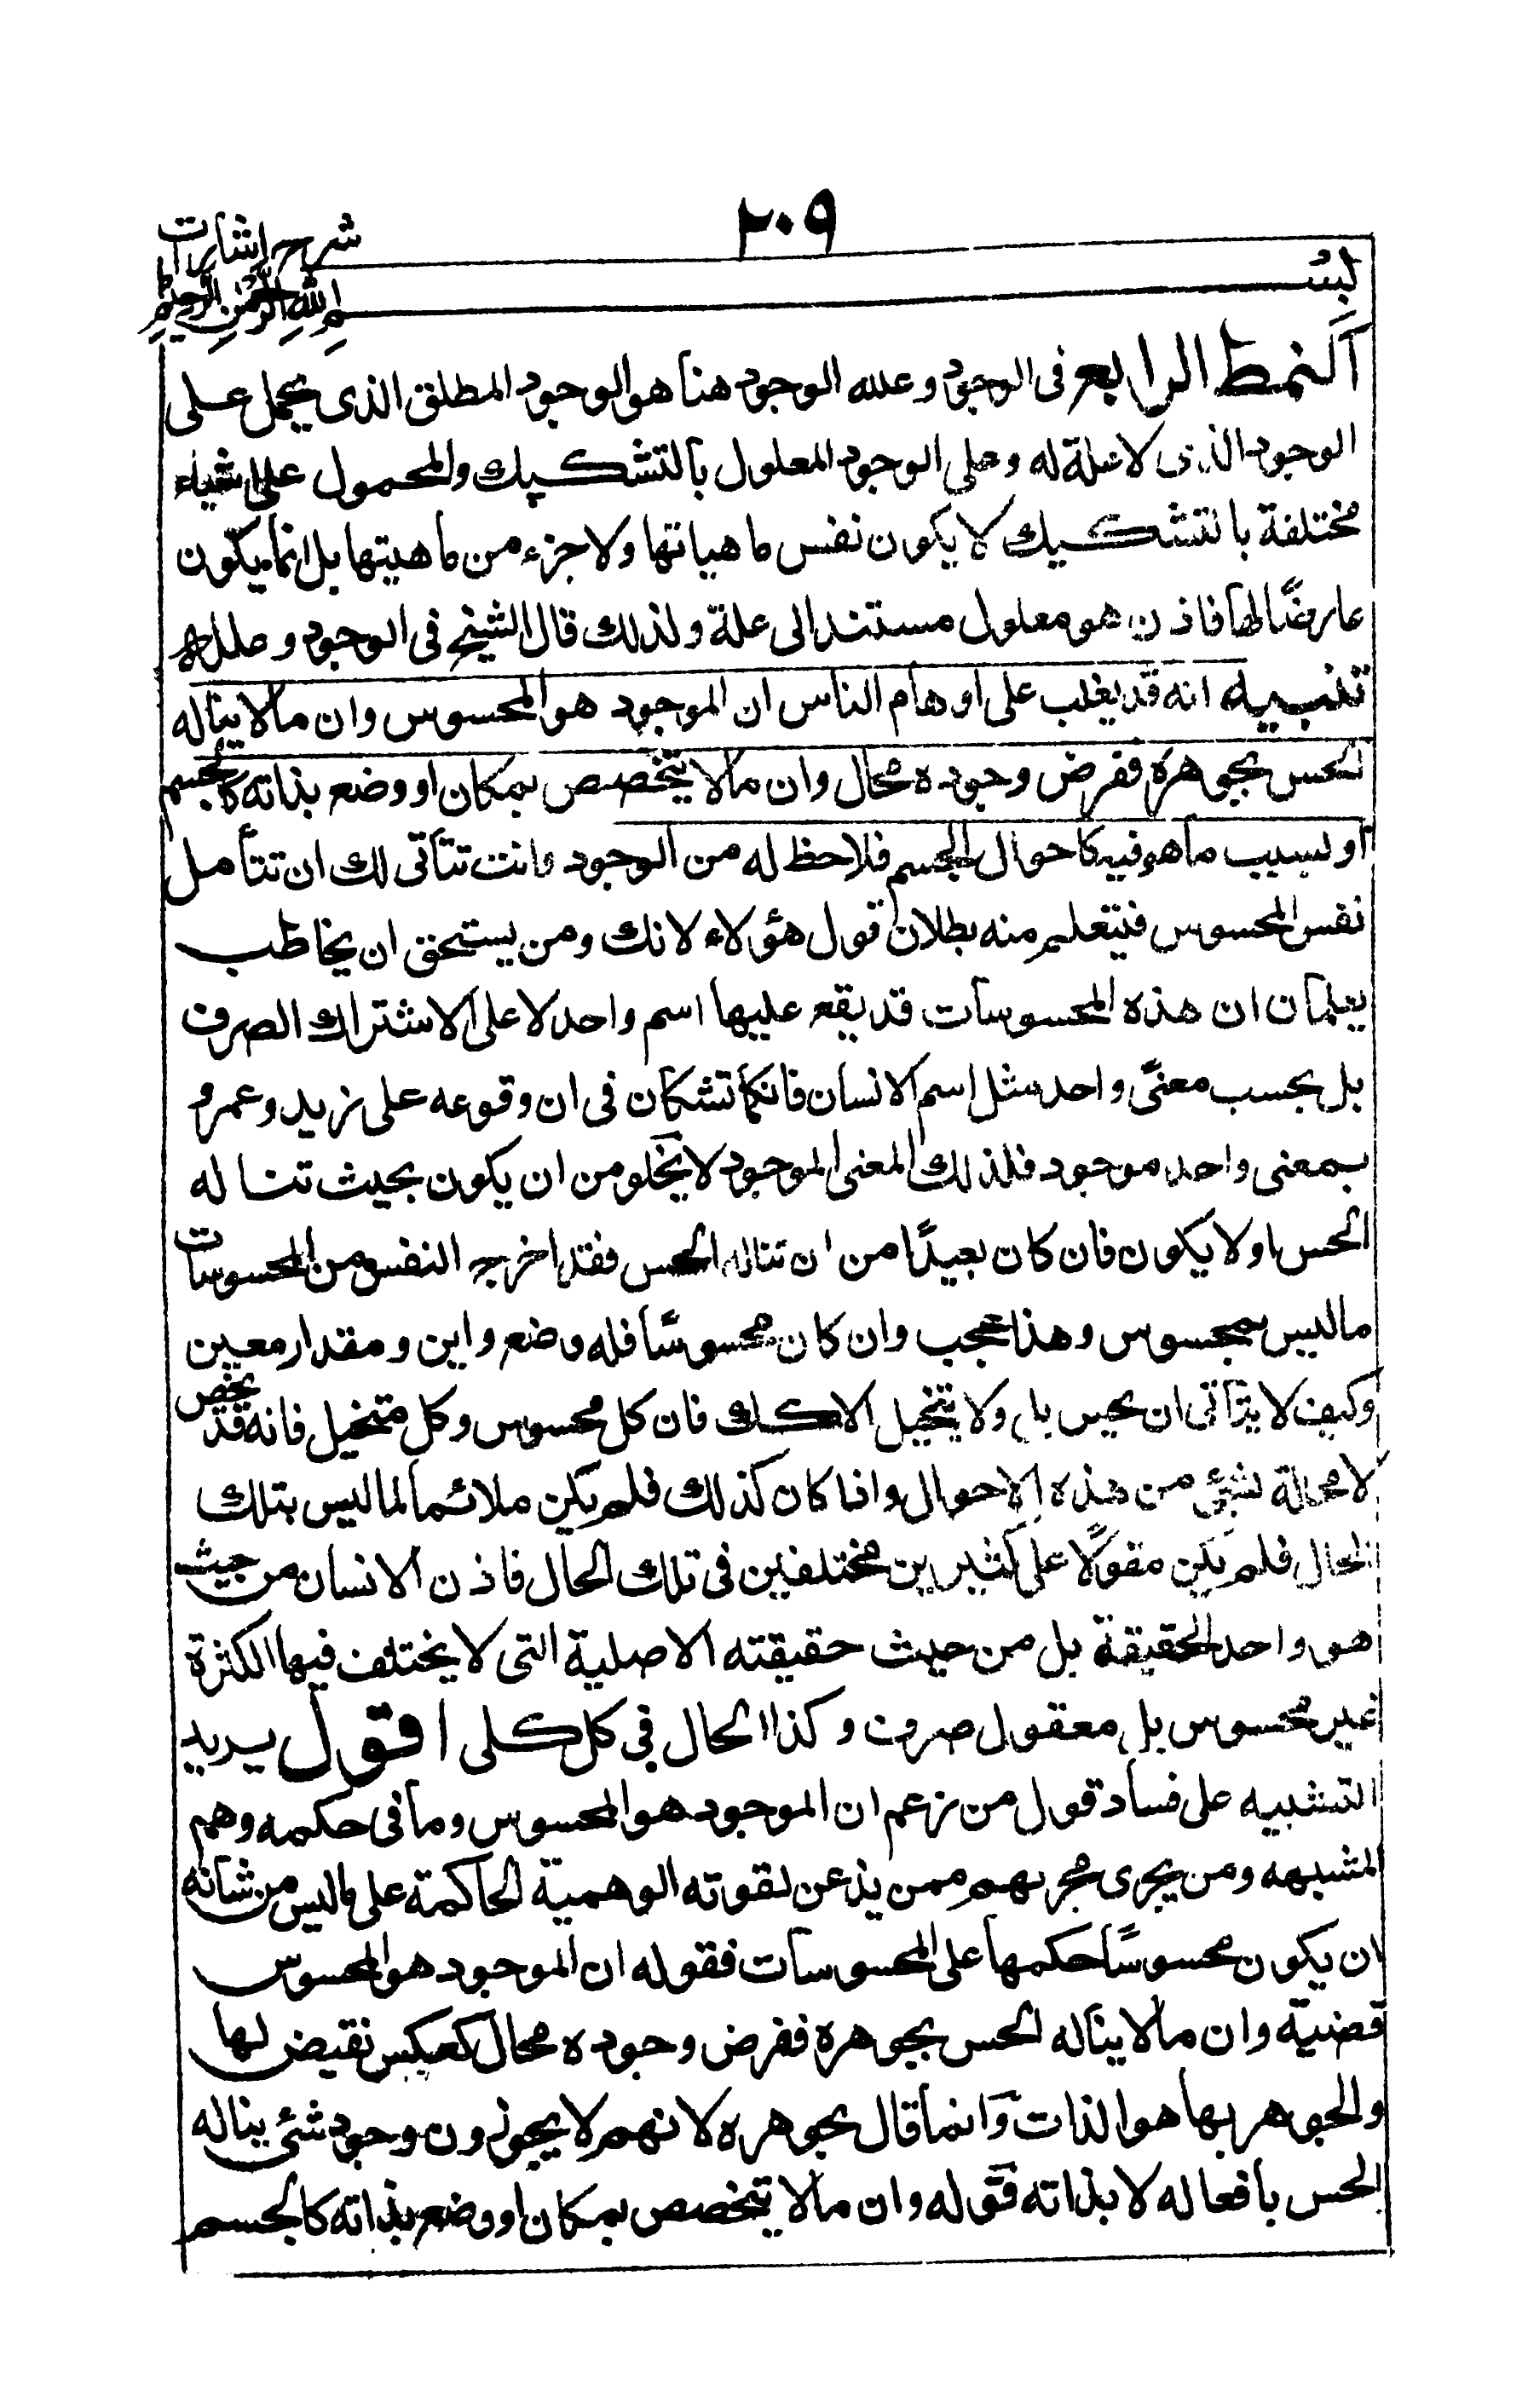 ٢٠٩
شرح اشارات
بسم الله الرحمن الرحيم
النمط الرابع فى الوجود وعلله الوجود هنا هو الوجود المطلق الذى يحمل على
الوجود الذى لا علة له وعلى الوجود المعلول بالتشكيك والمحمول على اشياء
مختلفة بالتشكيك لا يكون نفس ماهياتها ولا جزء من ماهيتها بل انما يكون
عارضًا لها فاذن هو معلول مستند الى علة ولذلك قال الشيخ فى الوجود وعلله
تنبيه انه قد يغلب على اوهام الناس ان الموجود هو المحسوس وان مالا يناله
الحس بجوهره ففرض وجوده محال وان مالا يتخصص بمكان او وضع بذاته كالجسم
او بسبب ما هو فيه كاحوال الجسم فلاحظ له من الوجود وانت تتأتى لك ان تتأمل
نفس المحسوس فتتعلم منه بطلان قول هؤلاء لانك ومن يستحق ان يخاطب
يعلمان ان هذه المحسوسات قد يقع عليها اسم واحد لا على الاشتراك الصرف
بل بحسب معنًى واحد مثل اسم الانسان فانكما تشكان فى ان وقوعه على زيد وعمرو
بمعنى واحد موجود فلذلك المعنى الموجود لا يخلو من ان يكون بحيث تناله
الحس او لا يكون فان كان بعيدًا من ان تناله الحس فقد اخرج النفس من المحسوسات
ما ليس بمحسوس وهذا عجب وان كان محسوسًا فله وضع واين ومقدار معين
وكيف لا يتأتى ان يحس بل ولا يتخيل الا كك فان كل محسوس وكل متخيل فانه قد يخص
لا محالة بشئ من هذه الاحوال واذا كان كذلك فلم يكن ملائما لما ليس بتلك
الحال فلم يكن مقولًا على كثيرين مختلفين فى تلك الحال فاذن الانسان من حيث
هو واحد الحقيقة بل من حيث حقيقته الاصلية التى لا يختلف فيها الكثرة
غير محسوس بل معقول صرف وكذا الحال فى كل كلى اقول يريد
التشبيه على فساد قول من زعم ان الموجود هو المحسوس وما فى حكمه وهم
المشبهه ومن يجرى مجريهم ممن يذعن لقوته الوهمية الحاكمة على ما ليس من شانه
ان يكون محسوسًا حكمها على المحسوسات فقوله ان الموجود هو المحسوس
قضية وان مالا يناله الحس بجوهره ففرض وجوده محال كعكس نقيض لها
والجوهر بها هو الذات وانما قال بجوهره لانهم لا يجوزون وجود شئ يناله
الحس بافعاله لا بذاته فقوله وان مالا يتخصص بمكان او وضع بذاته كالجسم